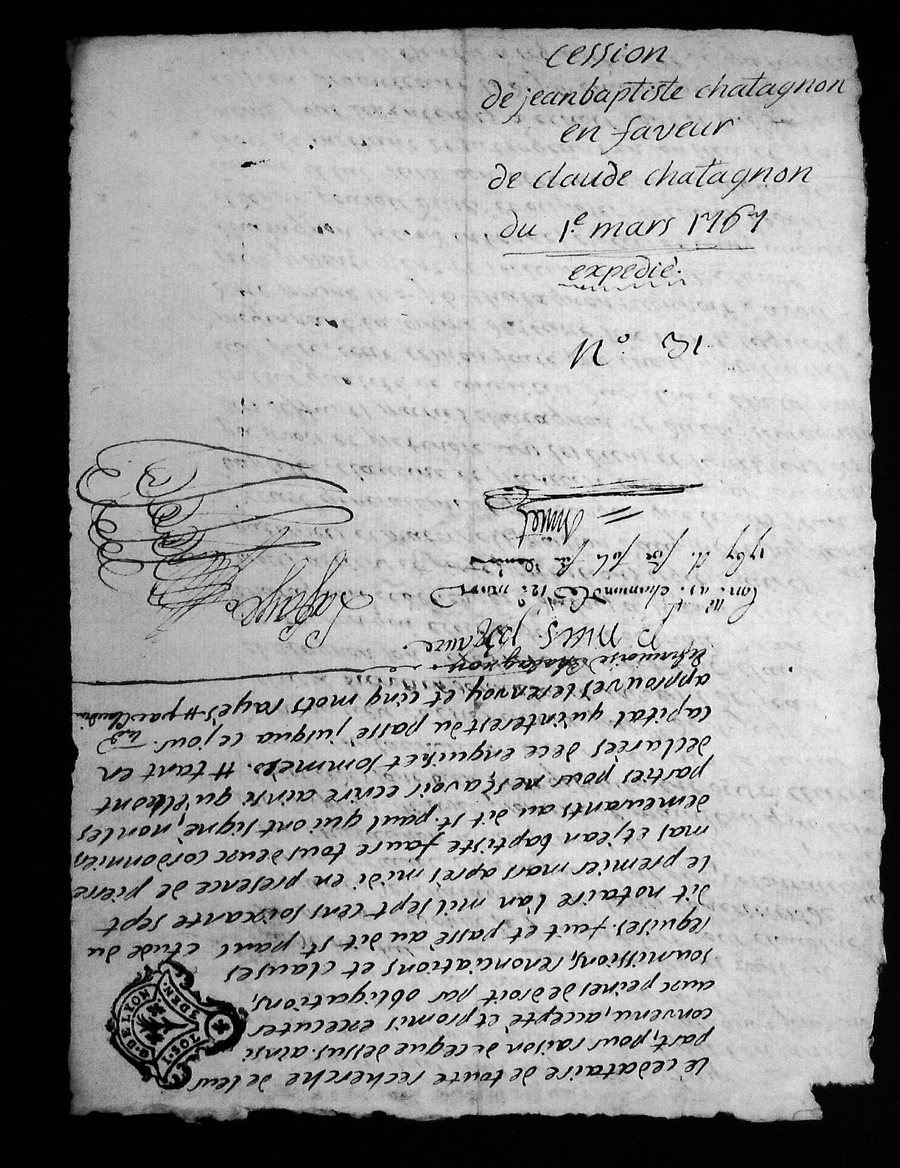 cession
de jean baptiste chatagnon
en faveur
de claude chatagnon
du 1e mars 1767
expedié.
No. 31.
le cedataire de toute recherche de leur
part, pour raison de ce que dessus. ainsi
convenu, accepté et promis executer
aux peines de droit par obligations,
soumissions, renonciations et clauses
requises. fait et passé au dit st. paul etude du
dit notaire l'an mil sept cens soixante sept
le premier mars après midi en presence de pierre
mas et jean baptiste faure tous deux cordonniers
demeurants au dit st. paul qui ont signé, non les
parties pour ne sçavoir ecrire ainsi qu'elles ont
declarées de ce enquises et sommées. # tant en
capital qu'interest du passé jusqua ce jour.
approuvés le renvoy et cinq mots rayés # par
P MAS. J B faure.
Con. a st. chamond le 12e. mars
1767